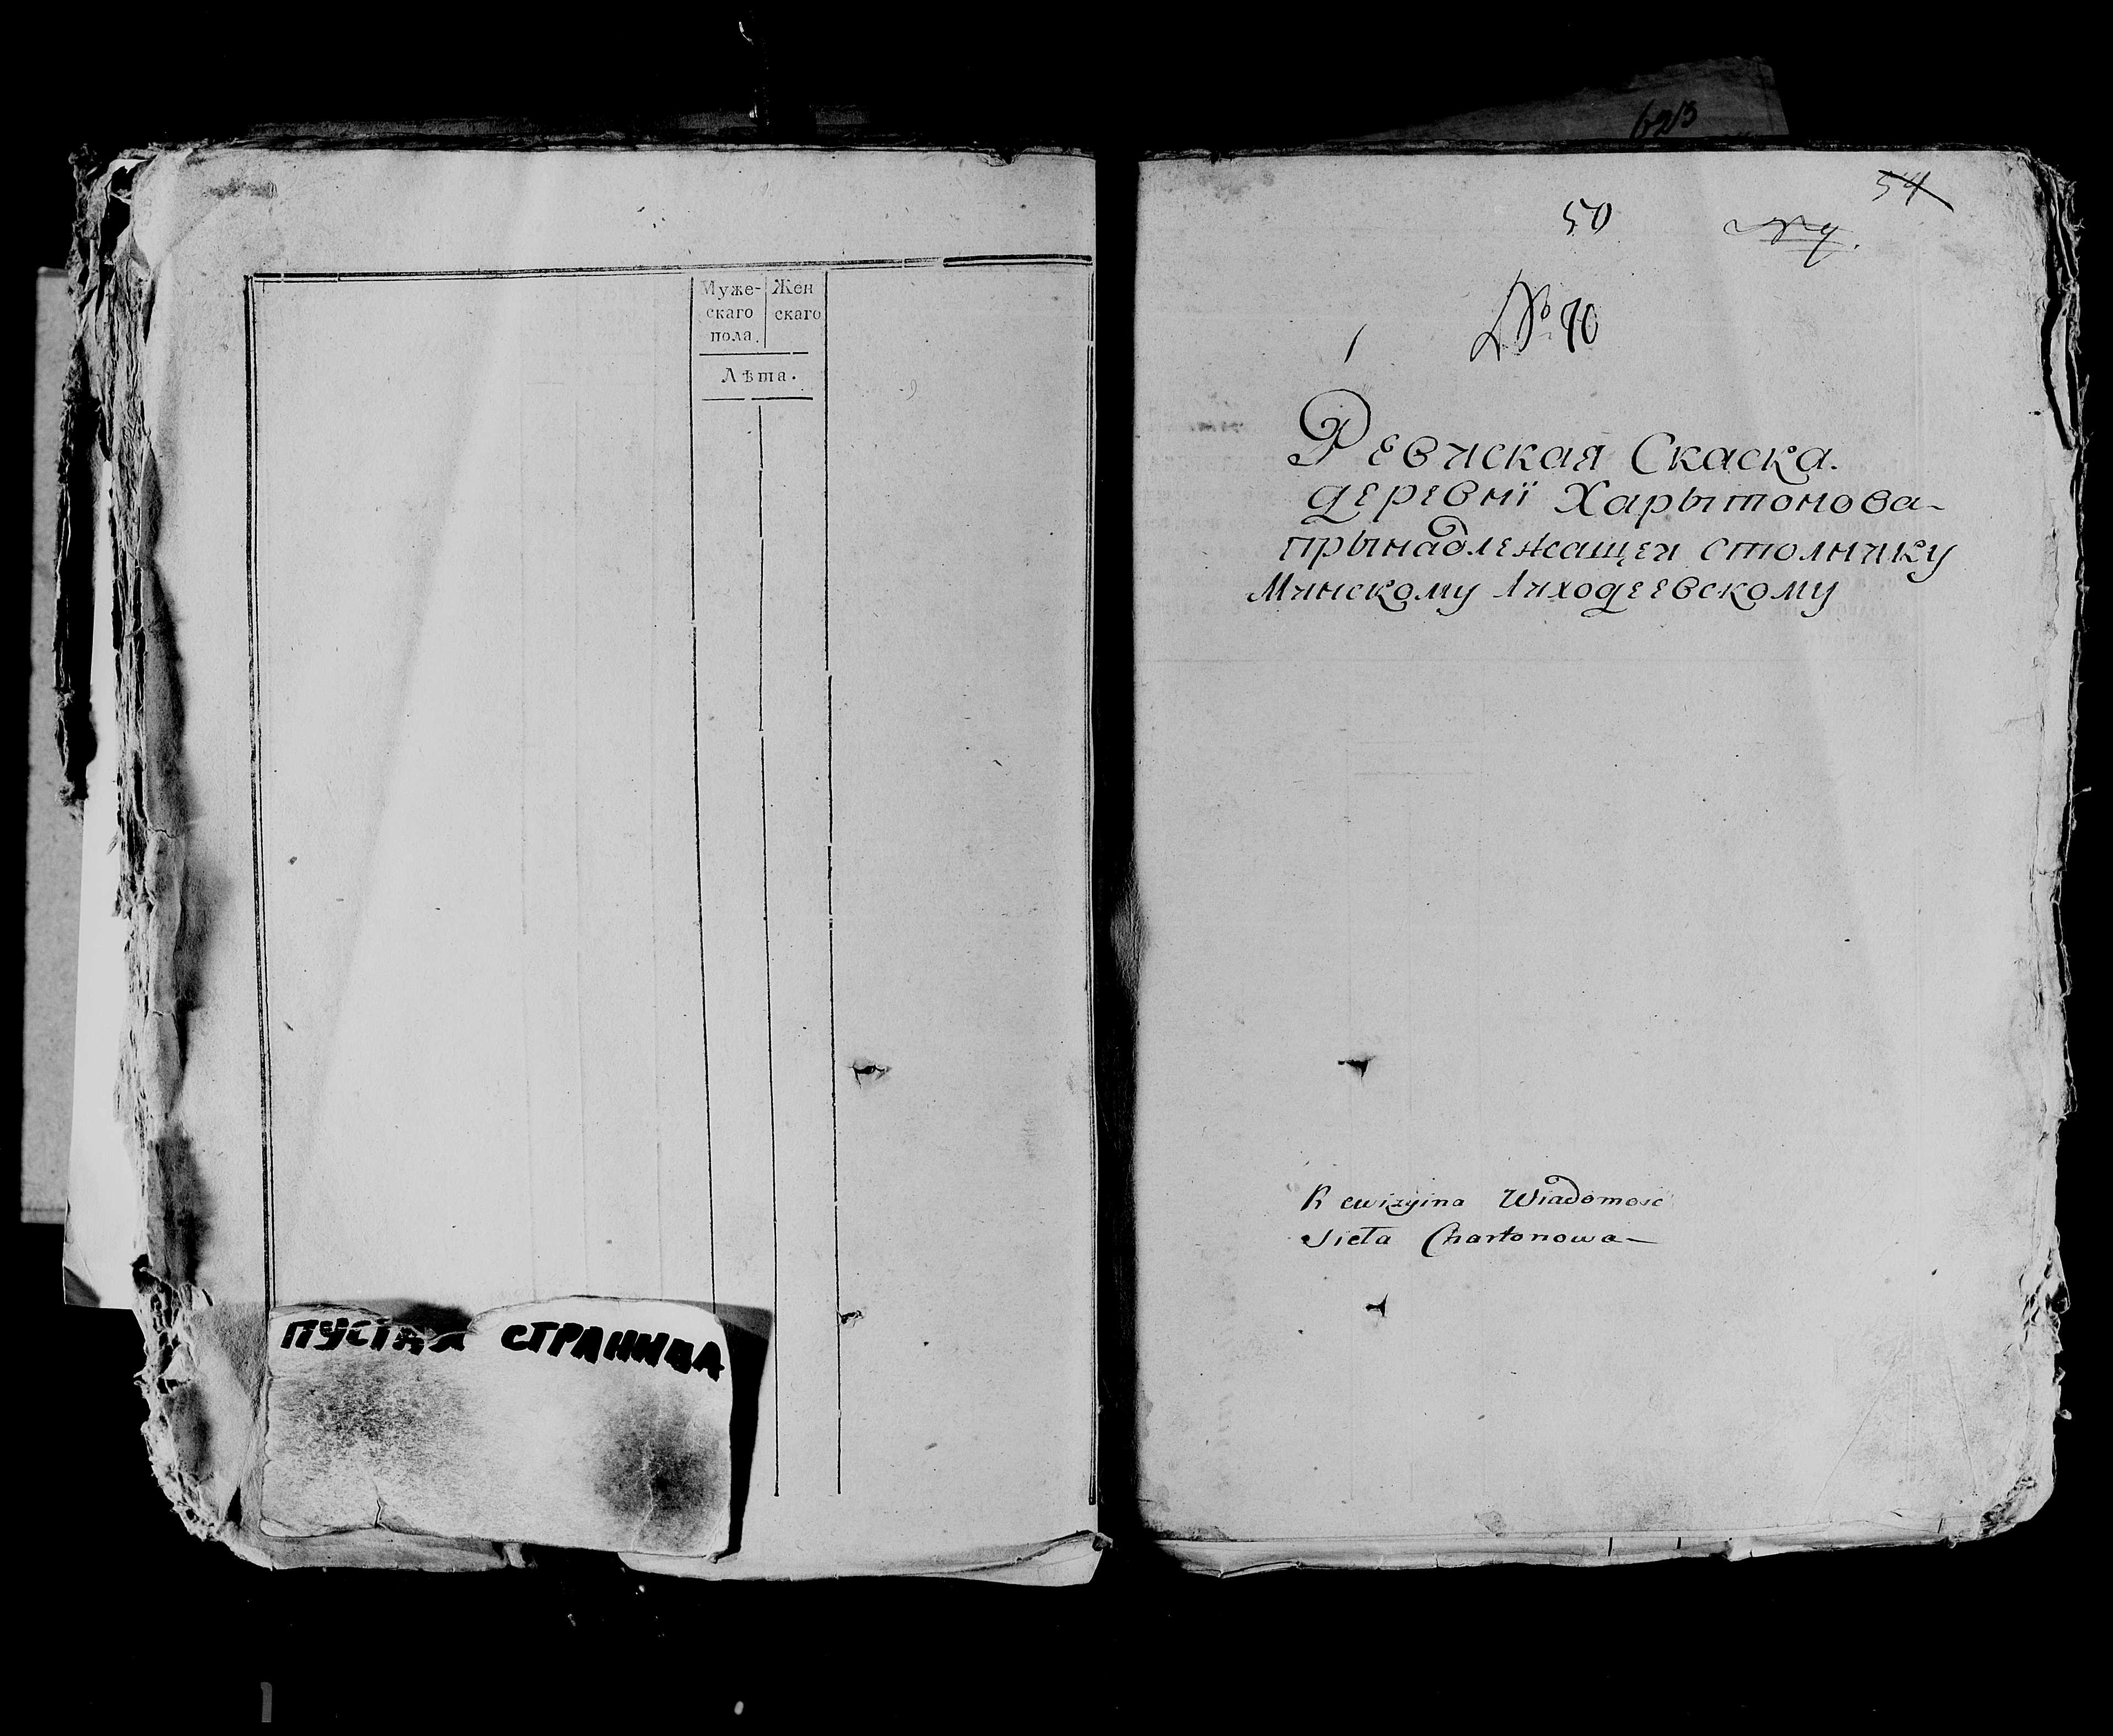 Муже-
скаго
пола.
Жен
скаго
Лѣта.
ПУСТАЯ СТРАНИЦА
623
54
50
№ 90
1
Ревиская Скаска.
деревнї Харытонова-
прынадлежащеи столнику
Минскому Лиходеевскому
Rewizyina Wiadomosc
Sieła Chartonowa-